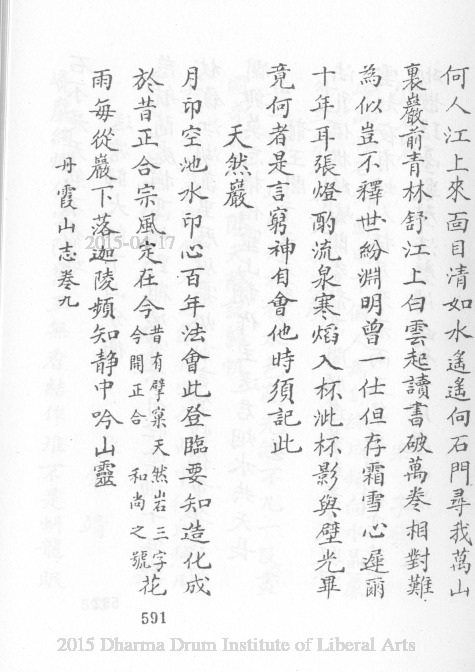 何人江上來面目清如水遙遙向石門尋我萬山
裏巖前青林舒江上白雲起讀書破萬卷相對難
為似豈不釋世紛淵明曾一仕但存霜雪心遲爾
十年耳張燈酌流泉寒熖入杯泚杯影與壁光畢
竟何者是言窮神自會他時須記此
天然巖
月印空池水印心百年法會此登臨要知造化成
於昔正合宗風定在今昔有擘窠天然岩三字今開正合和尚之號花
雨每從巖下落迦陵頻知静中吟山靈
丹霞山志卷九
2015-04-17
591
2015 Dharma Drum Institute of Liberal Arts